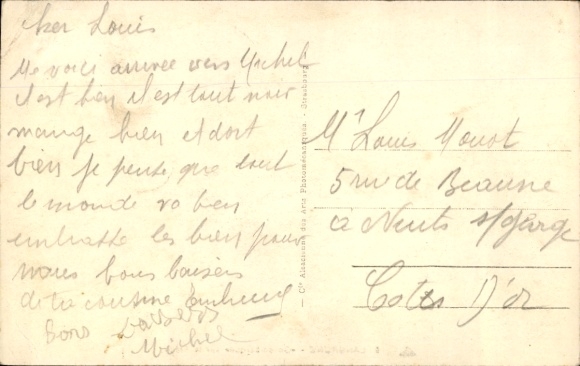 cher Louis
Me voici arrivée vers Michel
il est bien il est tout noir
mange bien et dort
bien je pense que tout
le monde va bien
embrasse les bien pour
nous bons baisers
de ta cousine
Bons baisers
Michel
Mr Louis Monot
5 rue de Beaune
à Nuits s/
Cotes D'or
— Cie Alsacienne des Arts Photomécaniques. - Strasbourg